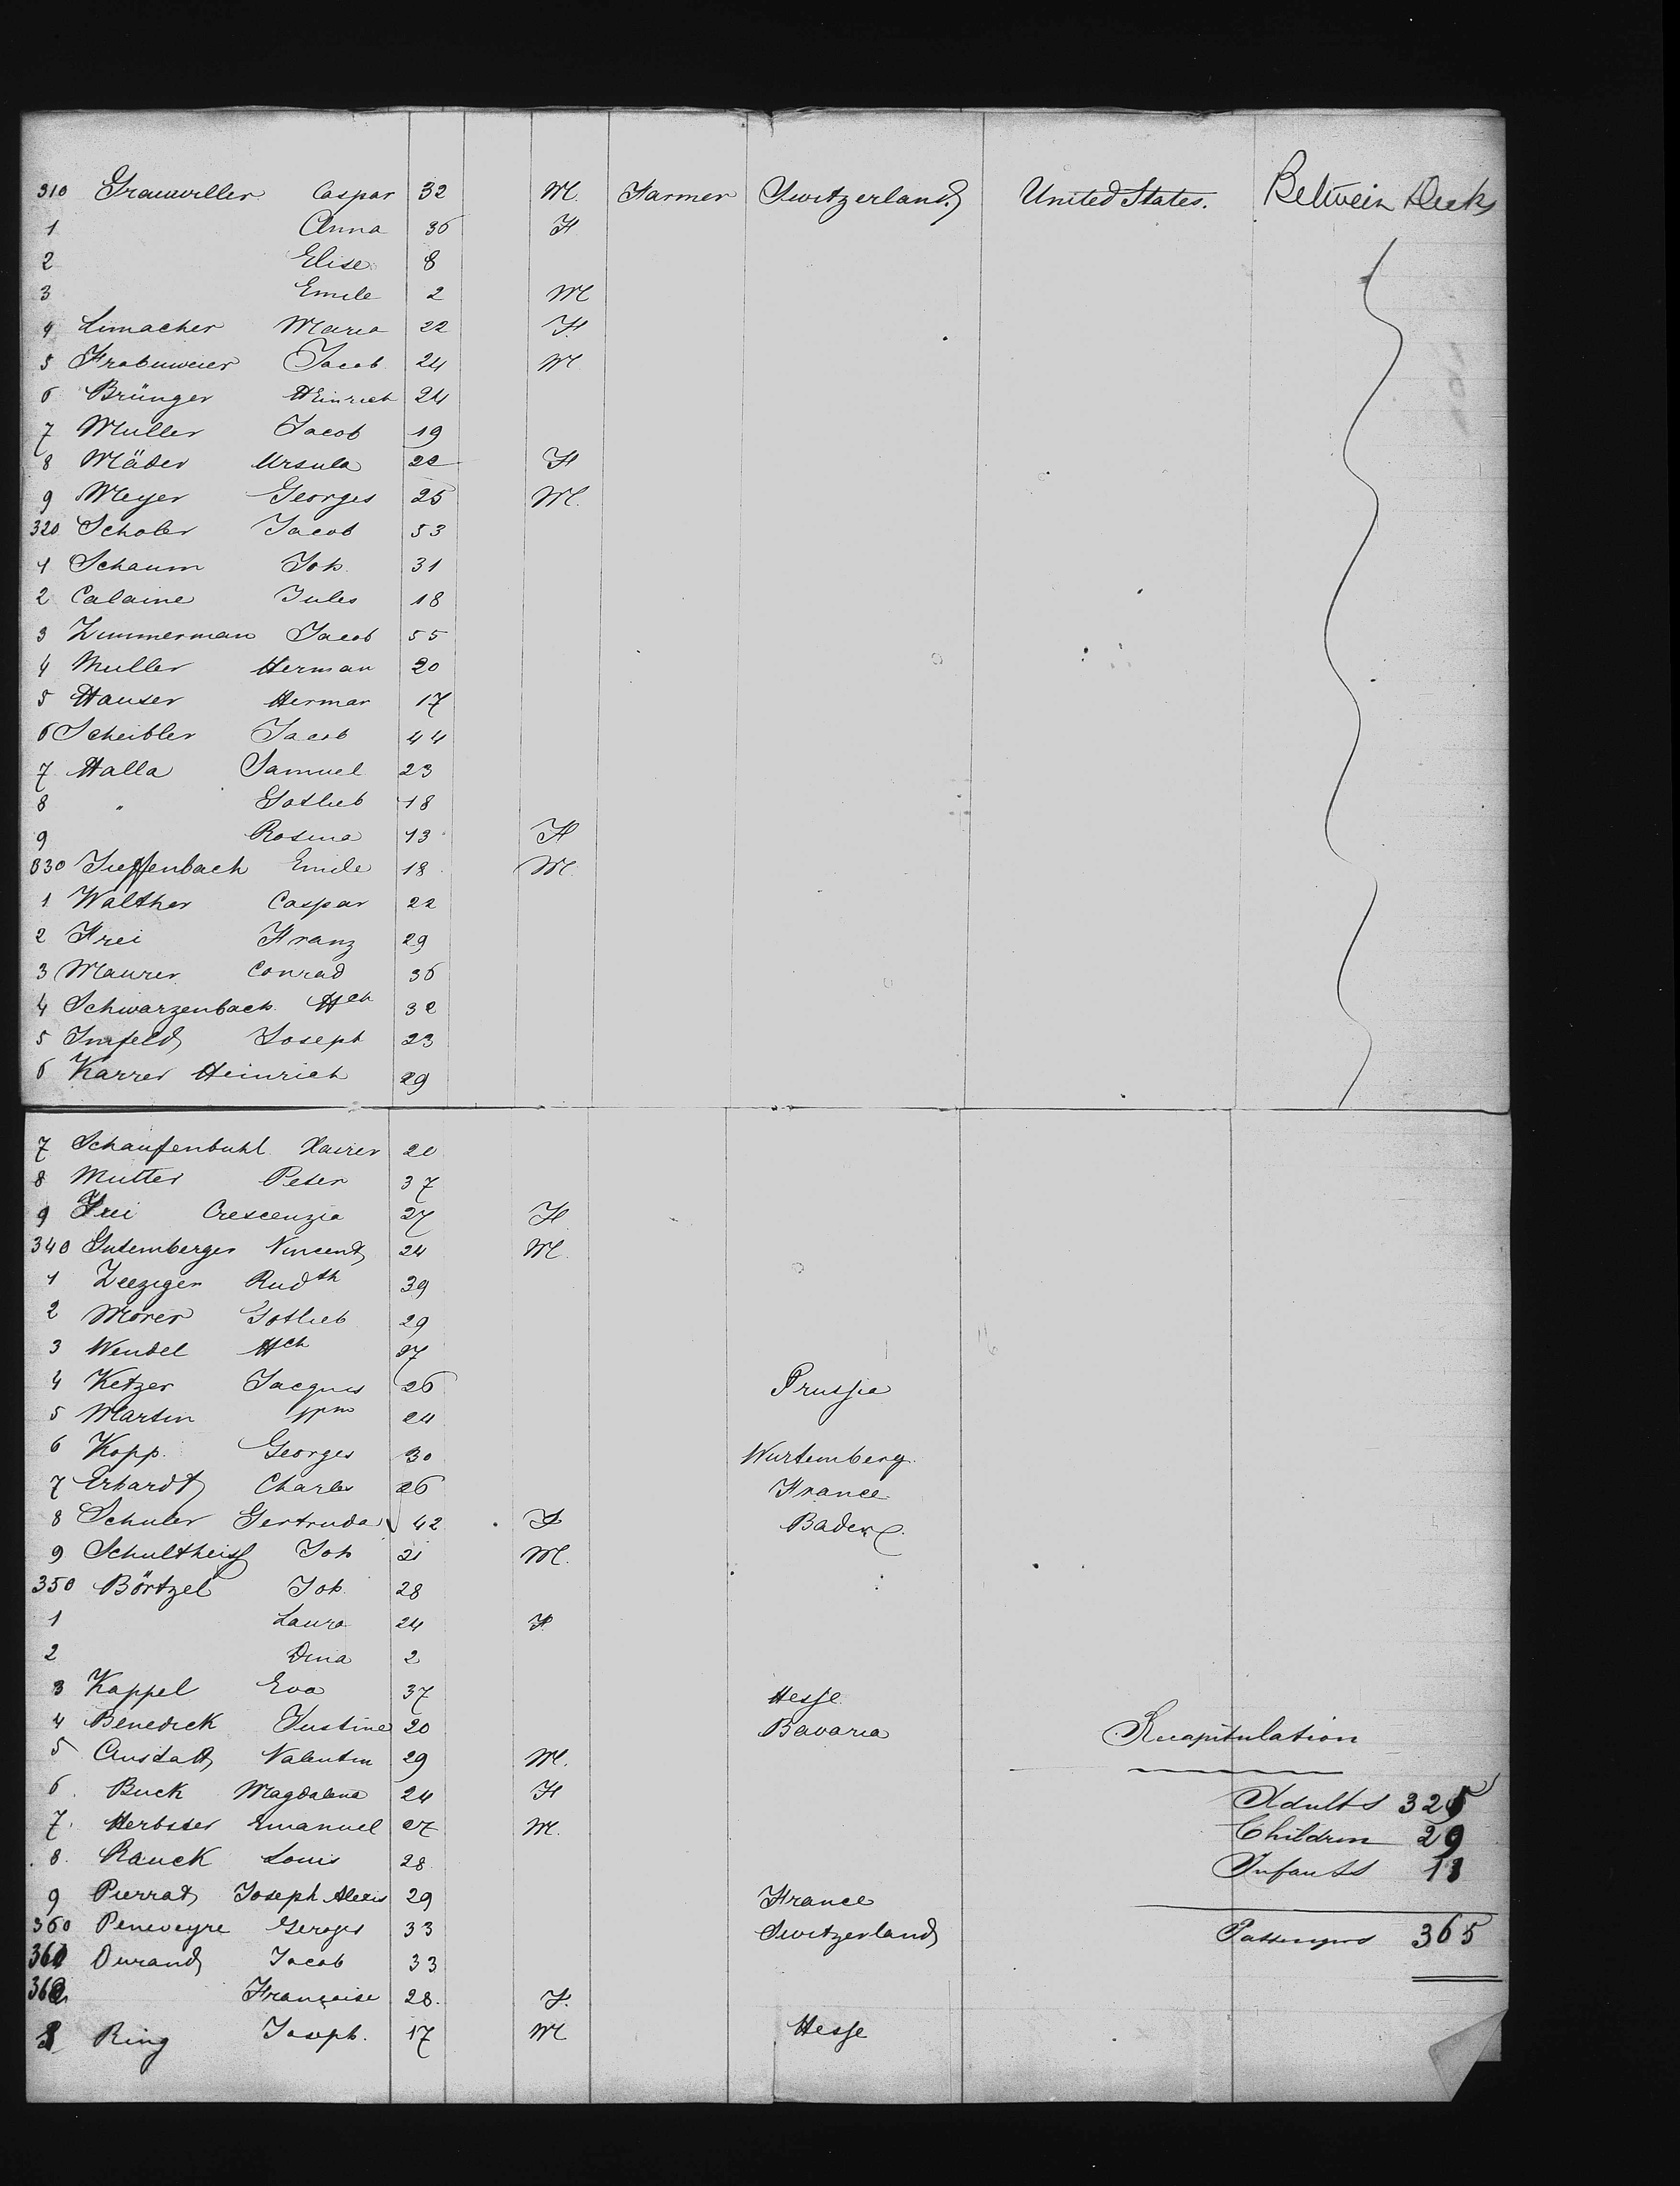 310 Grauwiller Caspar 32 M. Farmer Switzerland United States. Betwein Decks
1 Anna 36 F
2 Elise 8
3 Emile 2 M
4 Limacher Maria 22 F
5 Jacob 24 M
6 Brünger HEinrich 24
7 Muller Jacob 19
8 Mäder Ursula 22 F
9 Meyer Georges 25 M.
320 Scholer Jacob 53
1 Schaum Joh 31
2 Calaine Jules 18
3 Zimmerman Jacob 55
4 Muller Herman 20
5 Hauser Herman 17
6 Scheibler Jacob 44
7 Halla Samuel 23
8 " Gotlieb 18
9 Rosina 13 F
330 Tieffenbach Emile 18 M.
1 Walther Caspar 22
2 Frei Franz 29
3 Maurer Conrad 36
4 Schwarzenbach Hch 32
5 Imfeld Joseph 23
6 Karrer Heinrich 29
7 Schaufenbuhl Xavier 20
8 Mutter Peter 37
9 Frei Crescenzia 27 F
340 Gutemberger Vincent 24 M.
1 Rudth 39
2 Morer Gotlieb 29
3 Wendel Hch 27
4 Ketzer Jacques 26 Prussia
5 Martin 24
6 Kopp Georges 30 Wurtemberg
7 Erhardt Charles 26 France
8 Schuler Gertruda 42 F Baden
9 Schultheiss Joh 21 M.
350 Börtzel Joh 28
1 Laura 24 F
2 Dina 2
3 Kappel Eva 37 Hesse
4 Benedick Justine 20 Bavaria Recapitulation
5 Valentin 29 M.
6 Buck Magdalena 24 F Adults 325
7. Herbster Emanuel 27 M. Children 29
8. Rauck Louis 28 Infants 11
9 Pierrat Joseph Alexis 29 France
360 Peneveyre Georges 33 Switzerland Passengers 365
361 Durand Jacob 33
362 Françoise 28. F.
3 Ring Joseph. 17 M Hesse